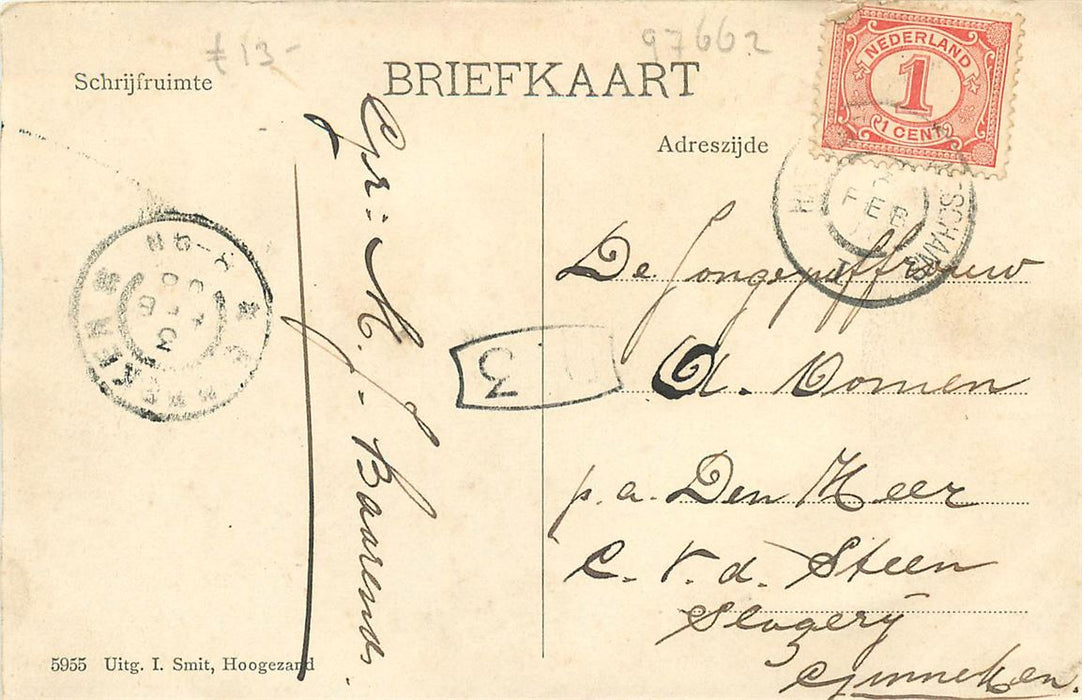 £ 13-
97662
Schrijfruimte
BRIEFKAART
Adreszijde
NEDERLAND
1
1 CENT
SCHANS
FEB
I
Gr: M. J. Baarends.
3
De Jongejuffrouw
A. Oomen
p. a. Den Heer
C. v. d. Steen
Slagerij
Ginneken.
5955 Uitg. I. Smit, Hoogezand